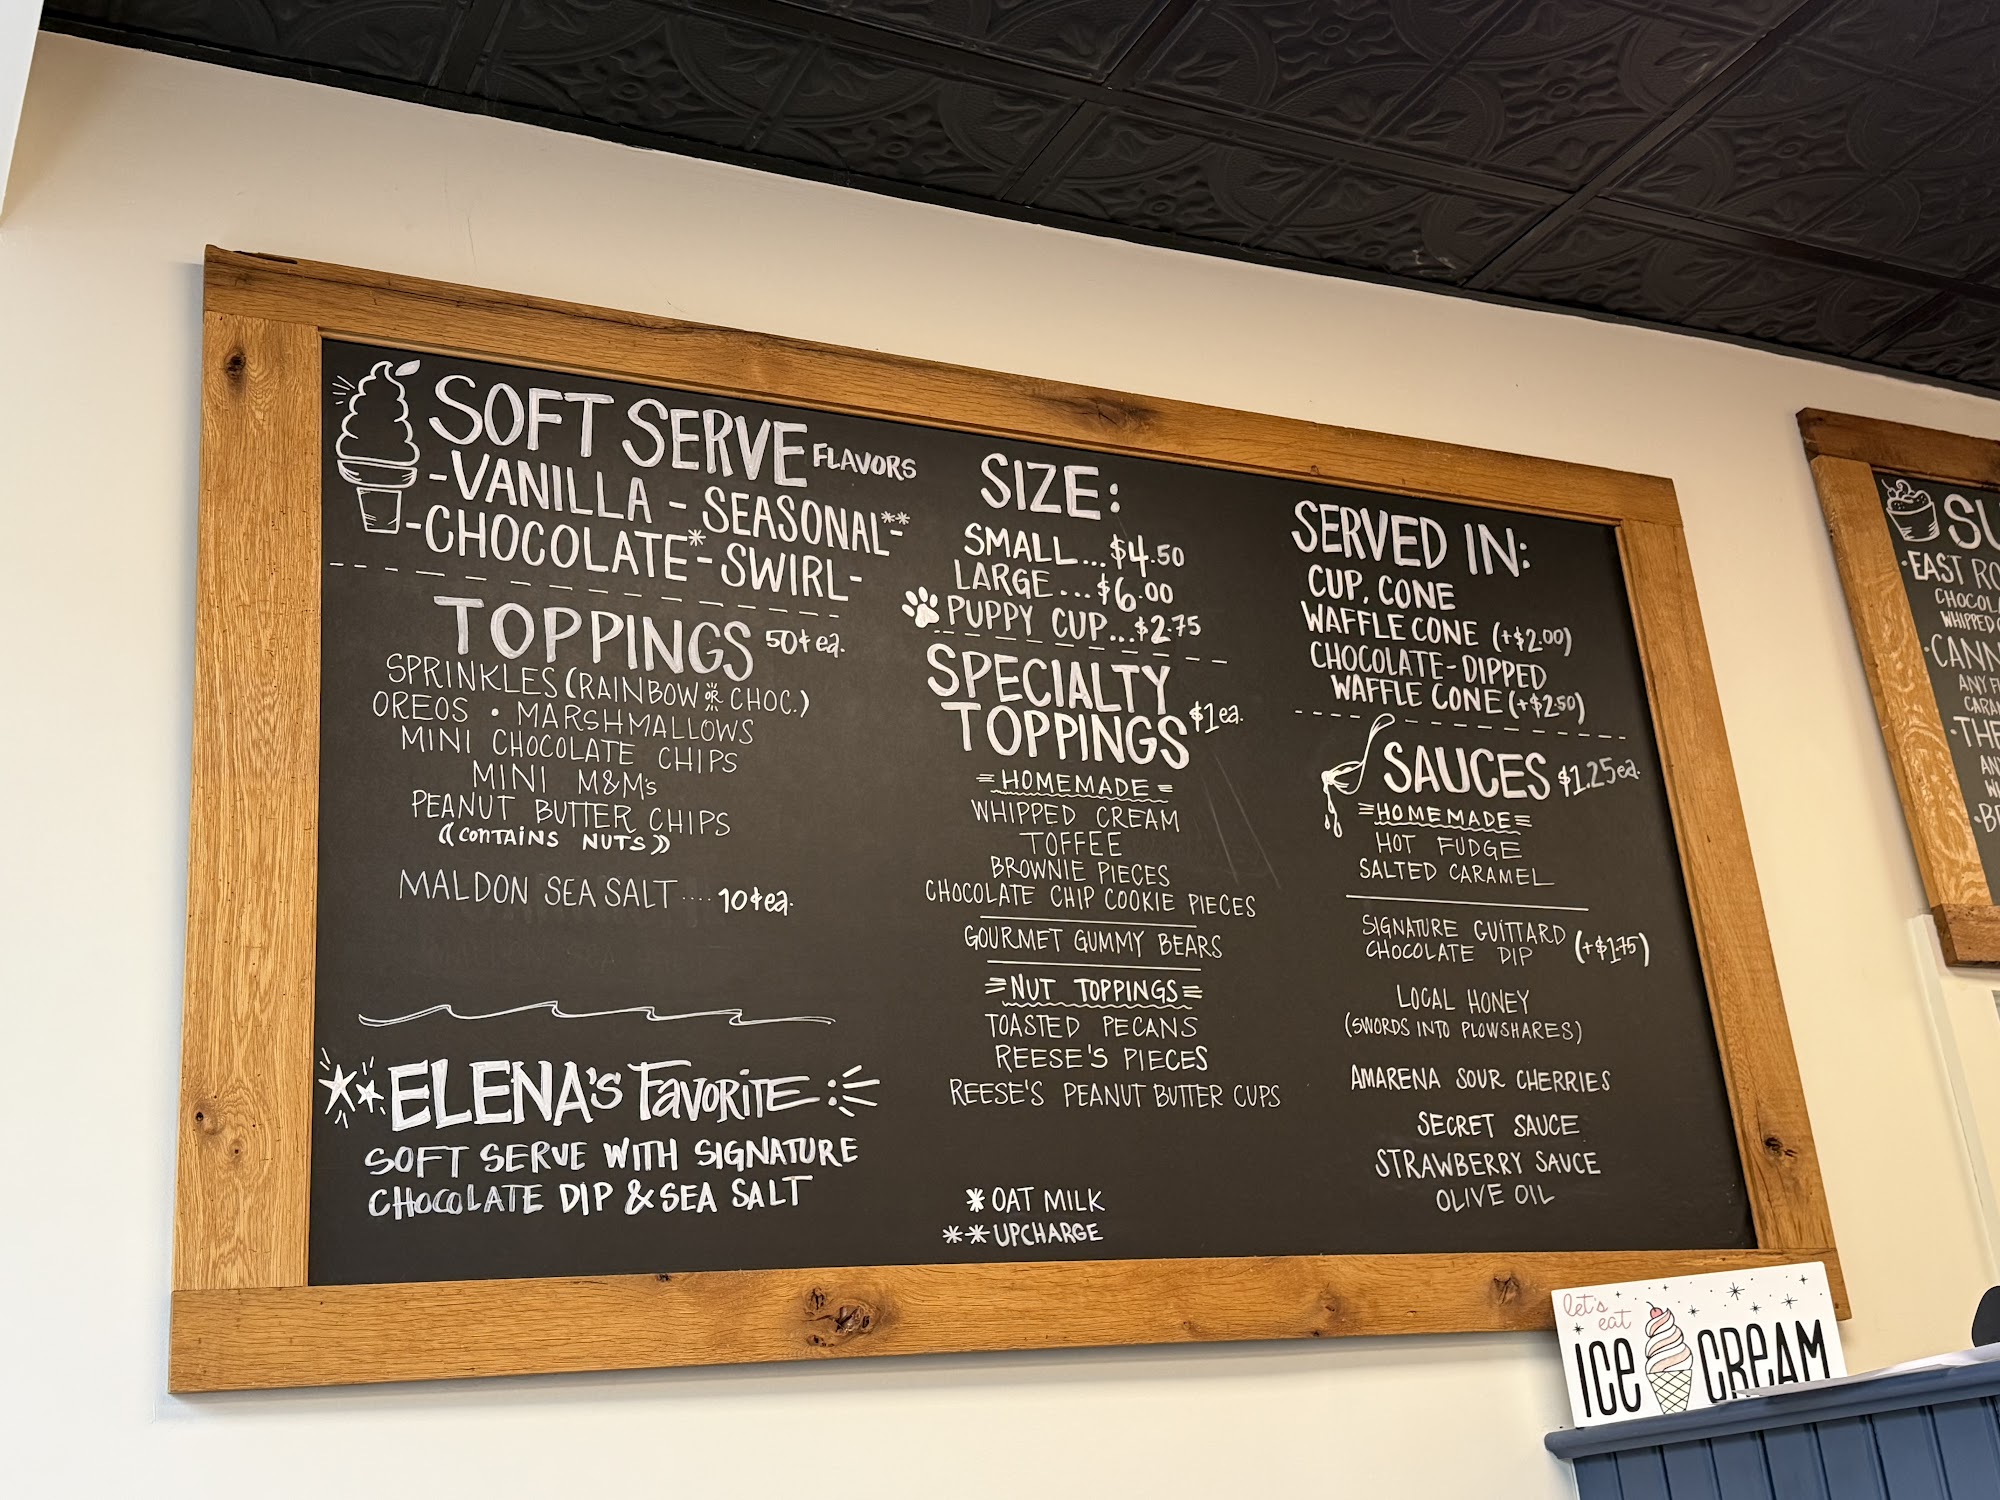 SOFT SERVE FLAVORS
-VANILLA - SEASONAL**-
-CHOCOLATE*-SWIRL-
TOPPINGS 50¢ ea.
SPRINKLES (RAINBOW OR CHOC.)
OREOS • MARSHMALLOWS
MINI CHOCOLATE CHIPS
MINI M&M's
PEANUT BUTTER CHIPS
((CONTAINS NUTS))
MALDON SEA SALT .... 10¢ ea.
ELENA's FAVORITE:
SOFT SERVE WITH SIGNATURE
CHOCOLATE DIP & SEA SALT
SIZE:
SMALL...$4.50
LARGE...$6.00
PUPPY CUP...$2.75
SPECIALTY
TOPPINGS $1 ea.
=HOMEMADE=
WHIPPED CREAM
TOFFEE
BROWNIE PIECES
CHOCOLATE CHIP COOKIE PIECES
GOURMET GUMMY BEARS
=NUT TOPPINGS=
TOASTED PECANS
REESE'S PIECES
REESE'S PEANUT BUTTER CUPS
* OAT MILK
** UPCHARGE
SERVED IN:
CUP, CONE
WAFFLE CONE (+$2.00)
CHOCOLATE-DIPPED
WAFFLE CONE (+$2.50)
SAUCES $1.25 ea.
=HOMEMADE=
HOT FUDGE
SALTED CARAMEL
SIGNATURE GUITTARD
CHOCOLATE DIP (+$1.75)
LOCAL HONEY
(SWORDS INTO PLOWSHARES)
AMARENA SOUR CHERRIES
SECRET SAUCE
STRAWBERRY SAUCE
OLIVE OIL
SU
•EAST RO
CHOCOLA
WHIPPED C
•CANN
ANY F
CARAM
•THE
AN
W
•BE
let's
eat
ICE CREAM